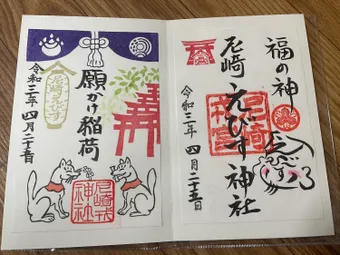 福の神
尼崎えびす神社
令和三年四月二十五日
願かけ稲荷
尼崎えびす
令和三年四月二十五日
尼崎戎
神社